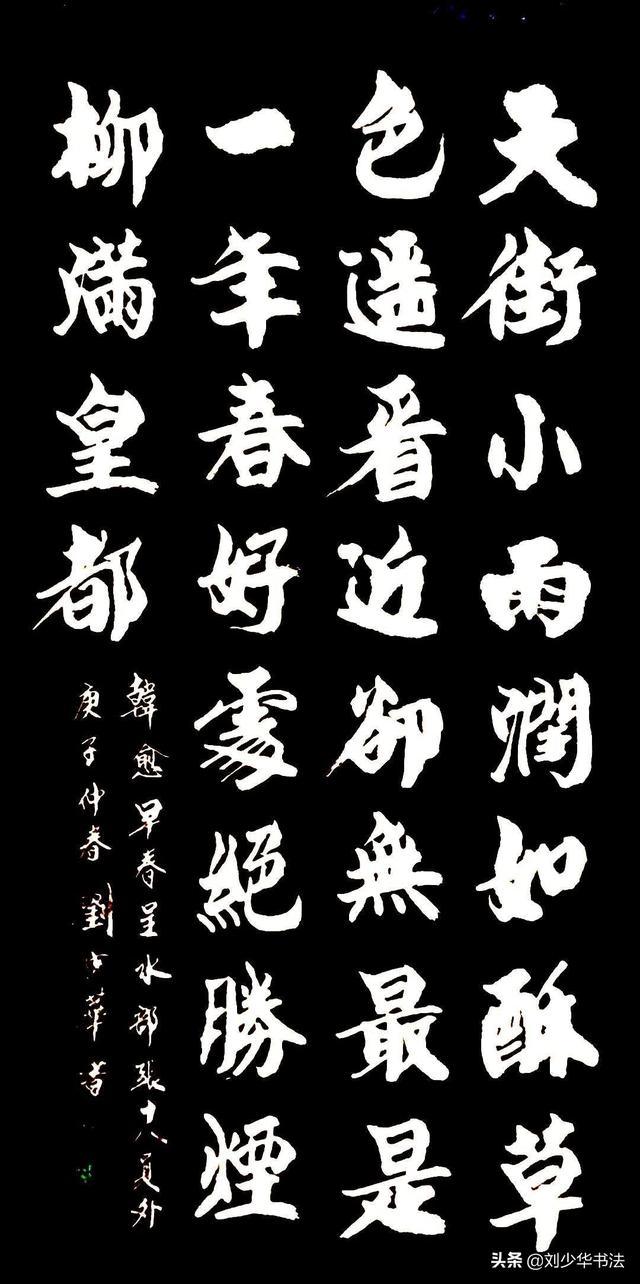 天街小雨潤如酥草
色遥看近卻無最是
一年春好處絕勝煙
柳滿皇都
韓愈早春呈水部張十八員外
庚子仲春劉少華書
头条 @刘少华书法